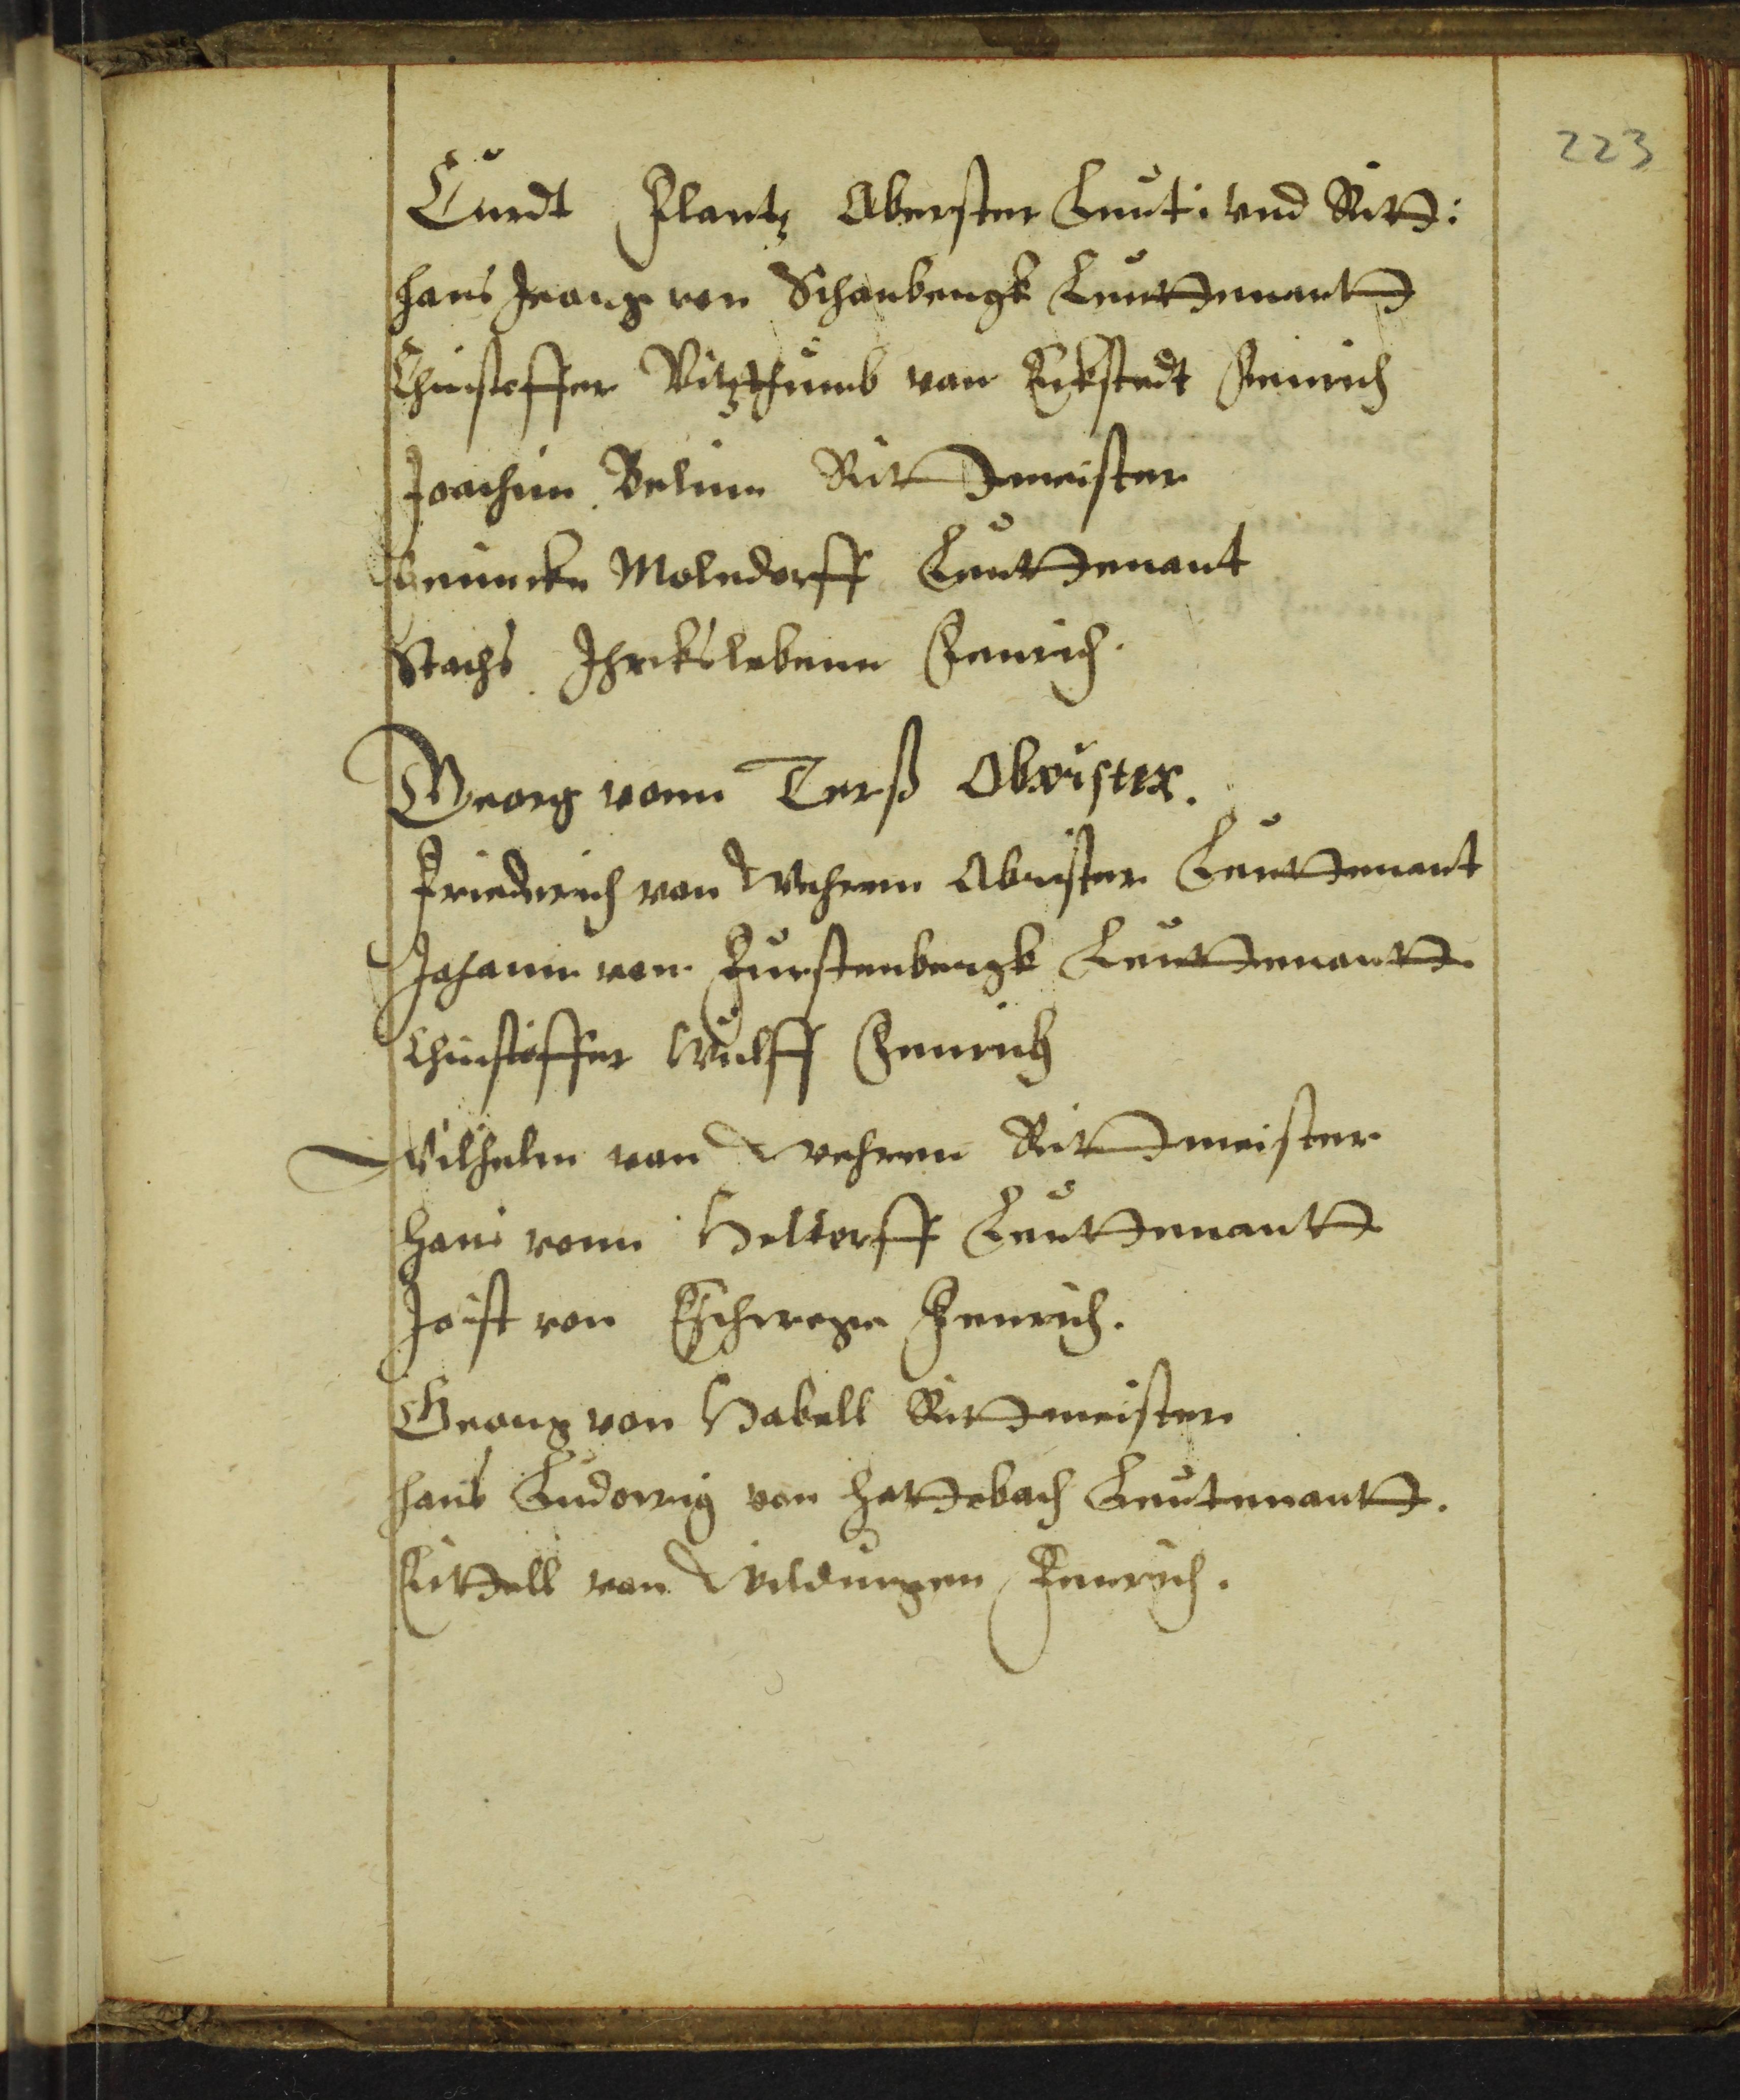 223
Curdt Plantz Oberster Leut: vnd Ritt:
Hans Georg von Schaubergk Leuttenantt
Christoffer Vitzthumb von Eckstedt Fenrich
Joachim Belinn Rittmeister
Henricke Molendorff Leuttenant
Stachs Ihrkslebenn Fenrich.
Georg vonn Terß Obrister.
Friederich von Wehrenn Obrister Leuttenant
Johann von Furstenbergk Leuttenantt
Christoffer Wulff Fenrich
Wilhelm von Wehrenn Rittmeister
Hans vonn Heltorff Leuttenantt
Joist von Eschwege Fenrich.
Georg von Habell Rittmeister
Hans Ludowig von Hattzbach Leutenantt.
Eittell von Wildungen Fenrich.